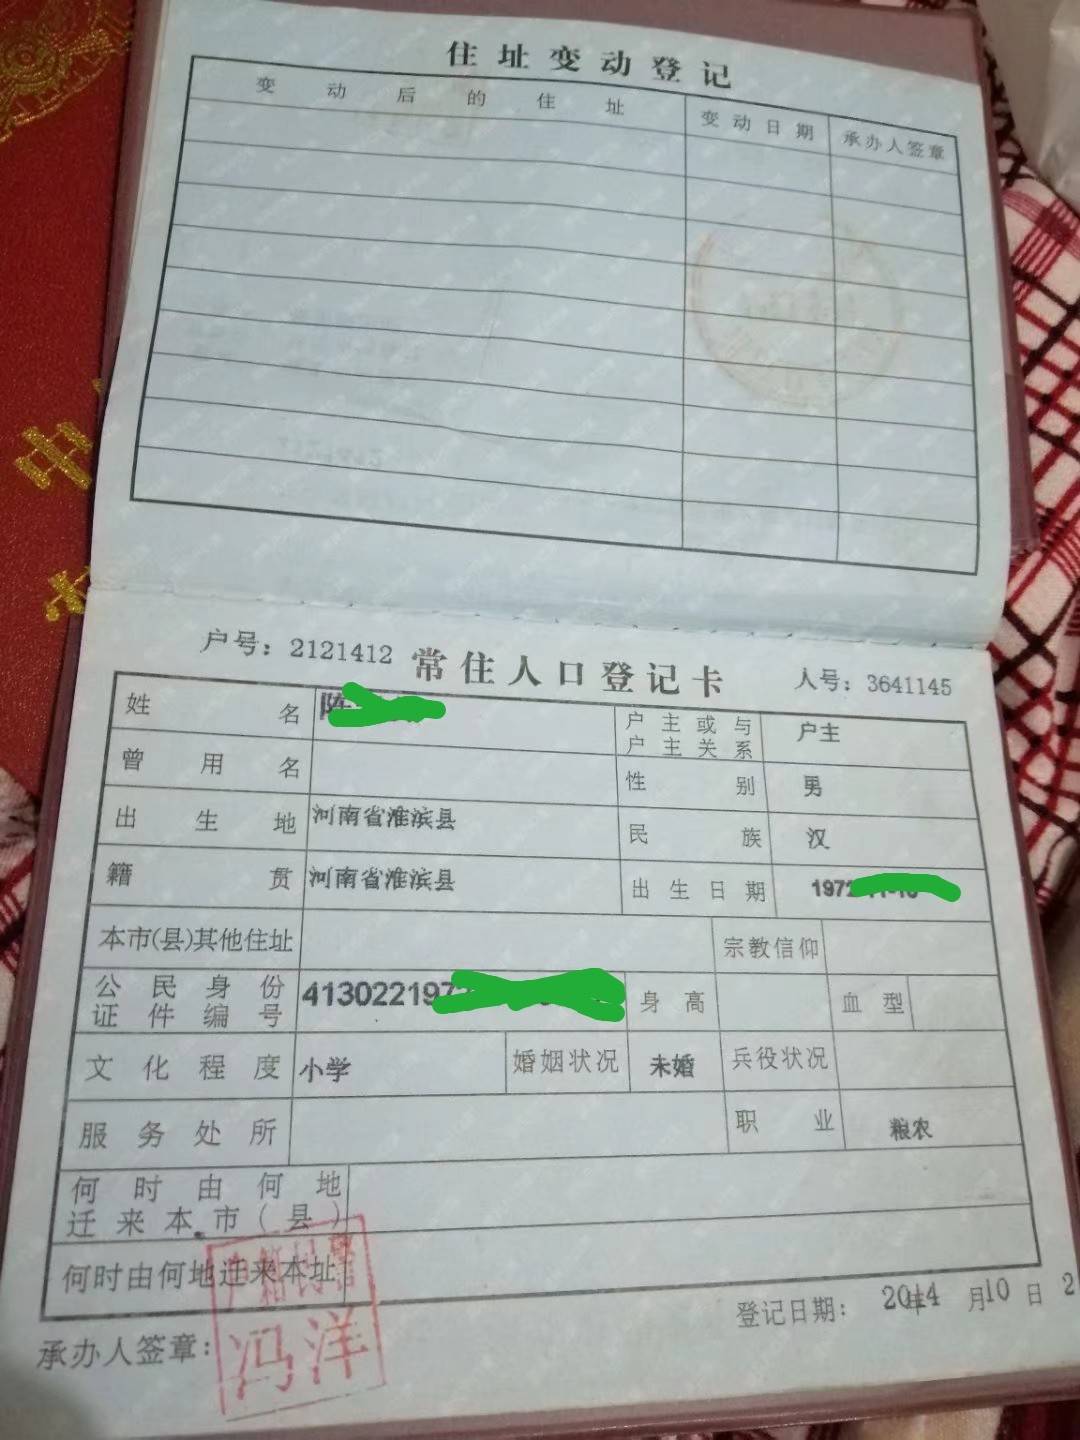 住址变动登记
变动后的住址 变动日期 承办人签章
中
户号：2121412 常住人口登记卡 人号：3641145
姓名 陈 户主或与户主关系 户主
曾用名 性别 男
出生地 河南省淮滨县 民族 汉
籍贯 河南省淮滨县 出生日期 1972
本市(县)其他住址 宗教信仰
公民身份证件编号 413022197 身高 血型
文化程度 小学 婚姻状况 未婚 兵役状况
服务处所 职业 粮农
何时由何地迁来本市(县)
何时由何地迁来本址
登记日期： 2014年 10月 2日
承办人签章： 冯洋